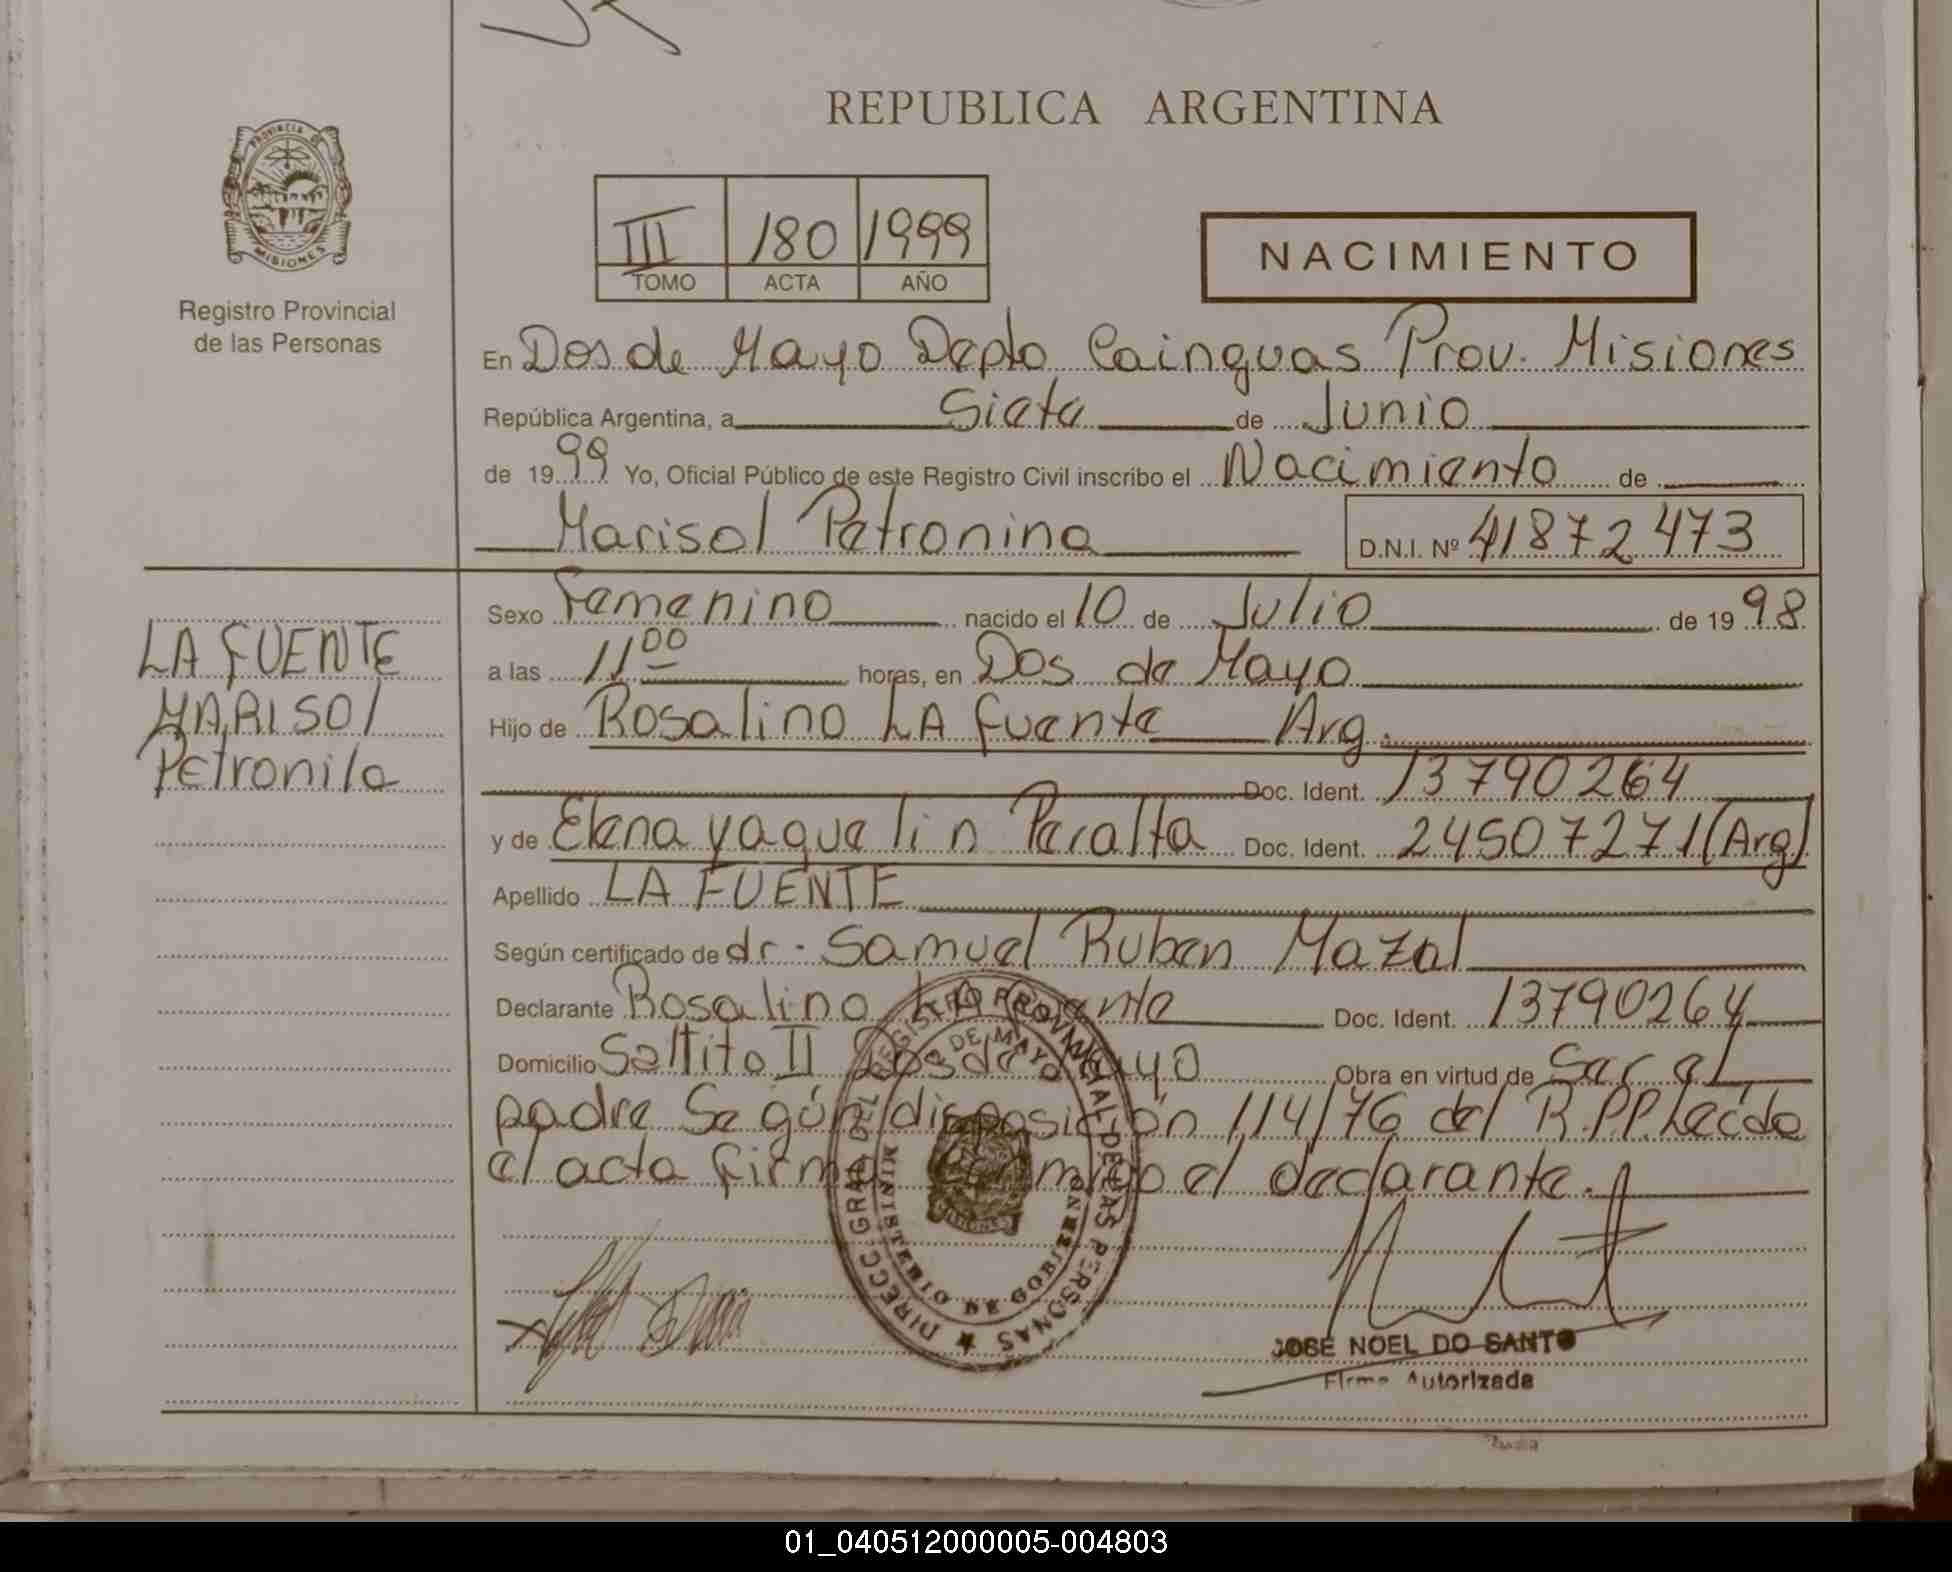 REPUBLICA ARGENTINA
PROVINCIA DE
MISIONES
Registro Provincial
de las Personas
III 180 1999
TOMO ACTA AÑO
NACIMIENTO
En Dos de Mayo Depto Cainguas Prov. Misiones
República Argentina, a Siete de Junio
de 1999 Yo, Oficial Público de este Registro Civil inscribo el Nacimiento de
Marisol Petronina D.N.I. Nº 41872473
Sexo Femenino nacido el 10 de Julio de 1998
a las 11 00 horas, en Dos de Mayo
Hijo de Rosalino LA fuente Arg.
Doc. Ident. 13790264
y de Elena yaquelin Peralta Doc. Ident. 24507271 (Arg)
Apellido LA FUENTE
Según certificado de dr. Samuel Ruben Mazal
Declarante Rosalino LA fuente Doc. Ident. 13790264
Domicilio Saltito II Dos de Mayo Obra en virtud de Ser el
padre Según disposición 114/76 del R.P.P. Leída
el acta firma conmigo el declarante.
LA FUENTE
MARISOl
Petronila
DIRECC GRAL DEL REGISTRO PROVINCIAL DE LAS PERSONAS
DOS DE MAYO
MINISTERIO DE GOBIERNO
MISIONES
JOSE NOEL DO SANTO
Firma Autorizada
01_040512000005-004803